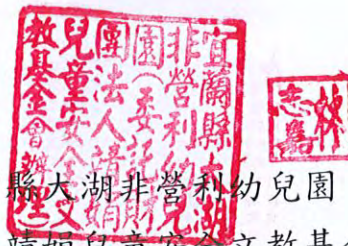 宜蘭縣大湖
非營利幼兒
園(委託財
團法人靖娟
兒童安全文
教基金會辦理)
林
志
縣大湖非營利幼兒園
靖娟兒童安全文教基